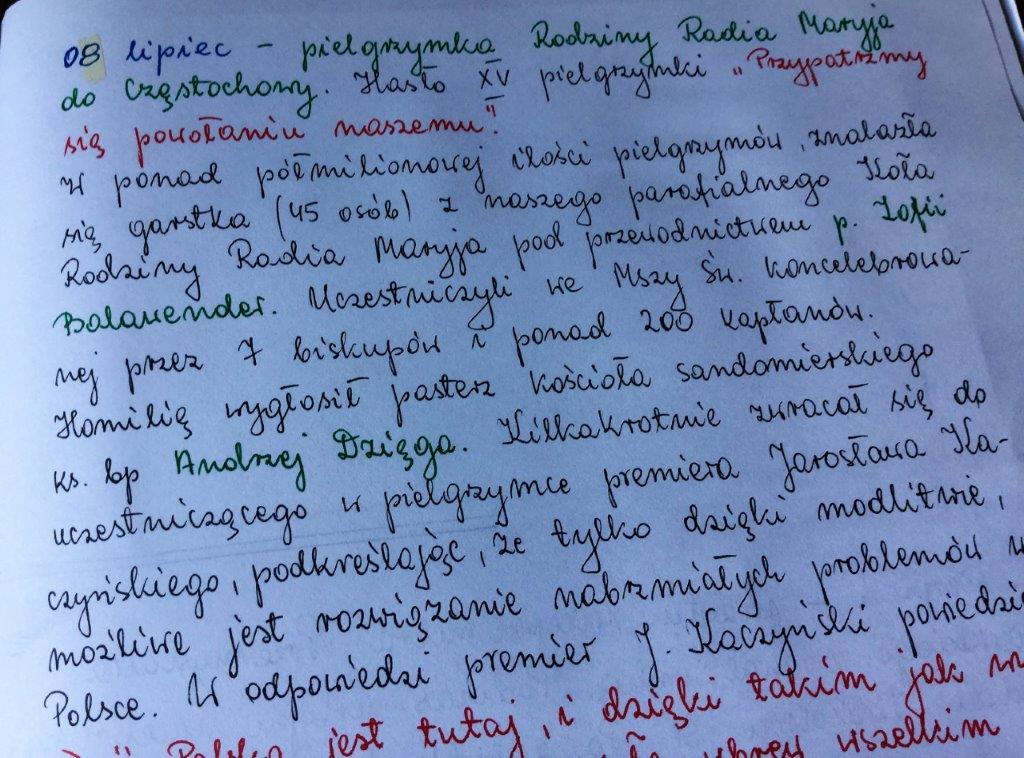 08 lipiec - pielgrzymka Rodziny Radia Maryja
do Częstochowy. Hasło XV pielgrzymki "Przypatrzmy
się powołaniu naszemu".
W ponad półmilionowej ilości pielgrzymów, znalazła
się garstka (45 osób) z naszego parafialnego Koła
Rodziny Radia Maryja pod przewodnictwem p. Zofii
Balawender. Uczestniczyli we Mszy Św. koncelebrowa-
nej przez 7 biskupów i ponad 200 kapłanów.
Homilię wygłosił pasterz kościoła sandomierskiego
ks. bp Andrzej Dzięga. Kilkakrotnie zwracał się do
uczestniczącego w pielgrzymce premiera Jarosława Ka-
czyńskiego, podkreślając, że tylko dzięki modlitwie,
możliwe jest rozwiązanie nabrzmiałych problemów w
Polsce. W odpowiedzi premier J. Kaczyński powiedzi
" Polska jest tutaj, i dzięki takim jak
wbrew wszelkim